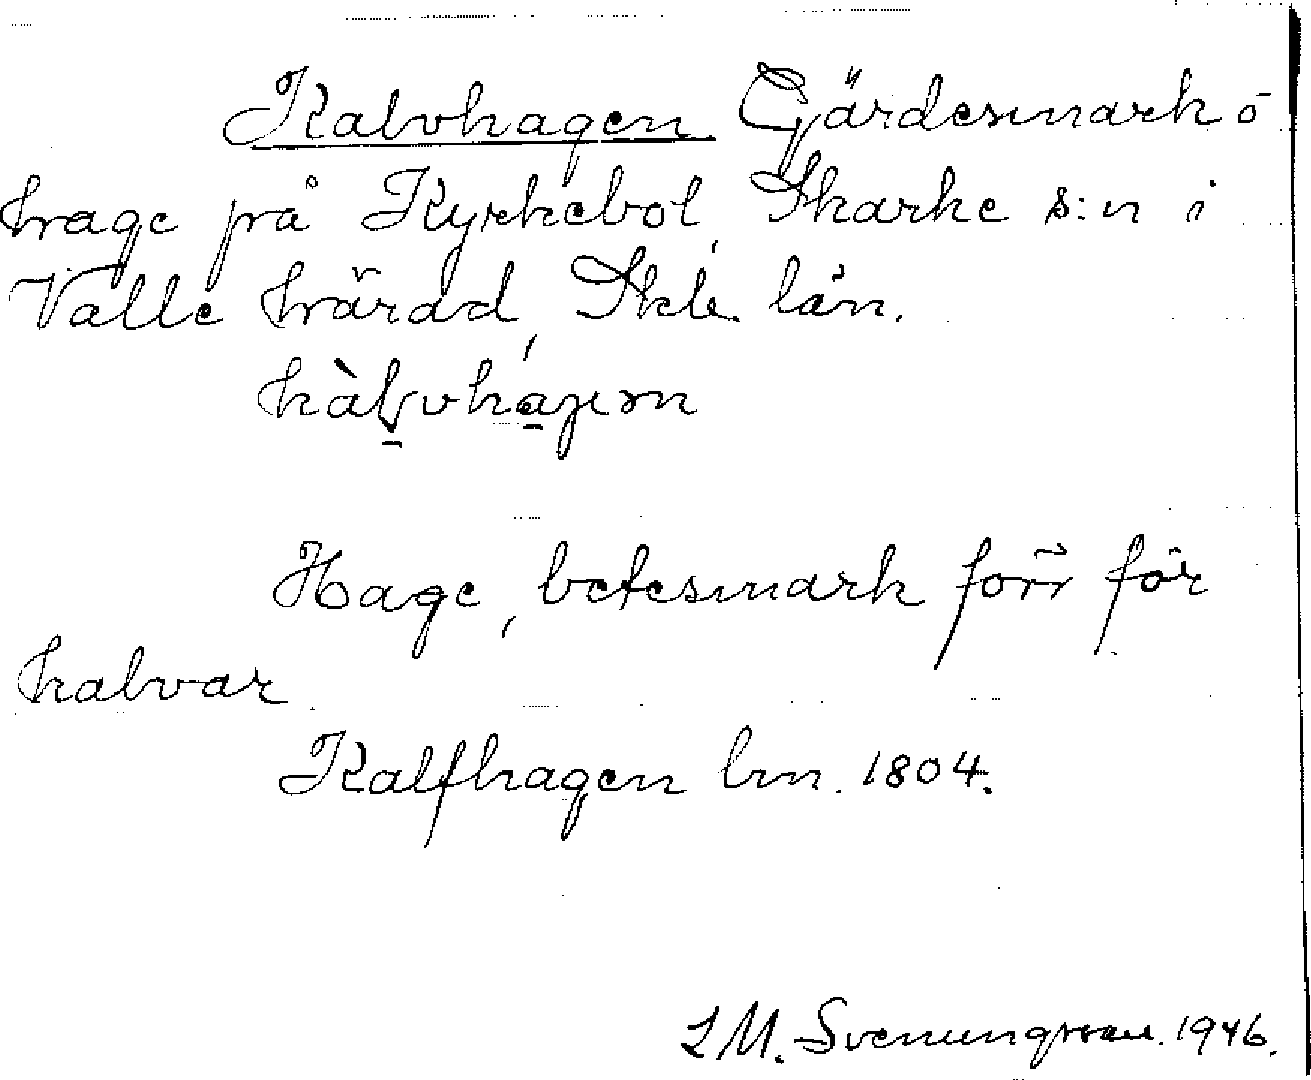 Kalvhagen. Gärdesmark o
hage på Kyrkebol, Skarke s:n i
Valle härad, Skb. län.
Hage, betesmark förr för
kalvar
Kalfhagen lm. 1804.
L M. Svenungsson. 1946.